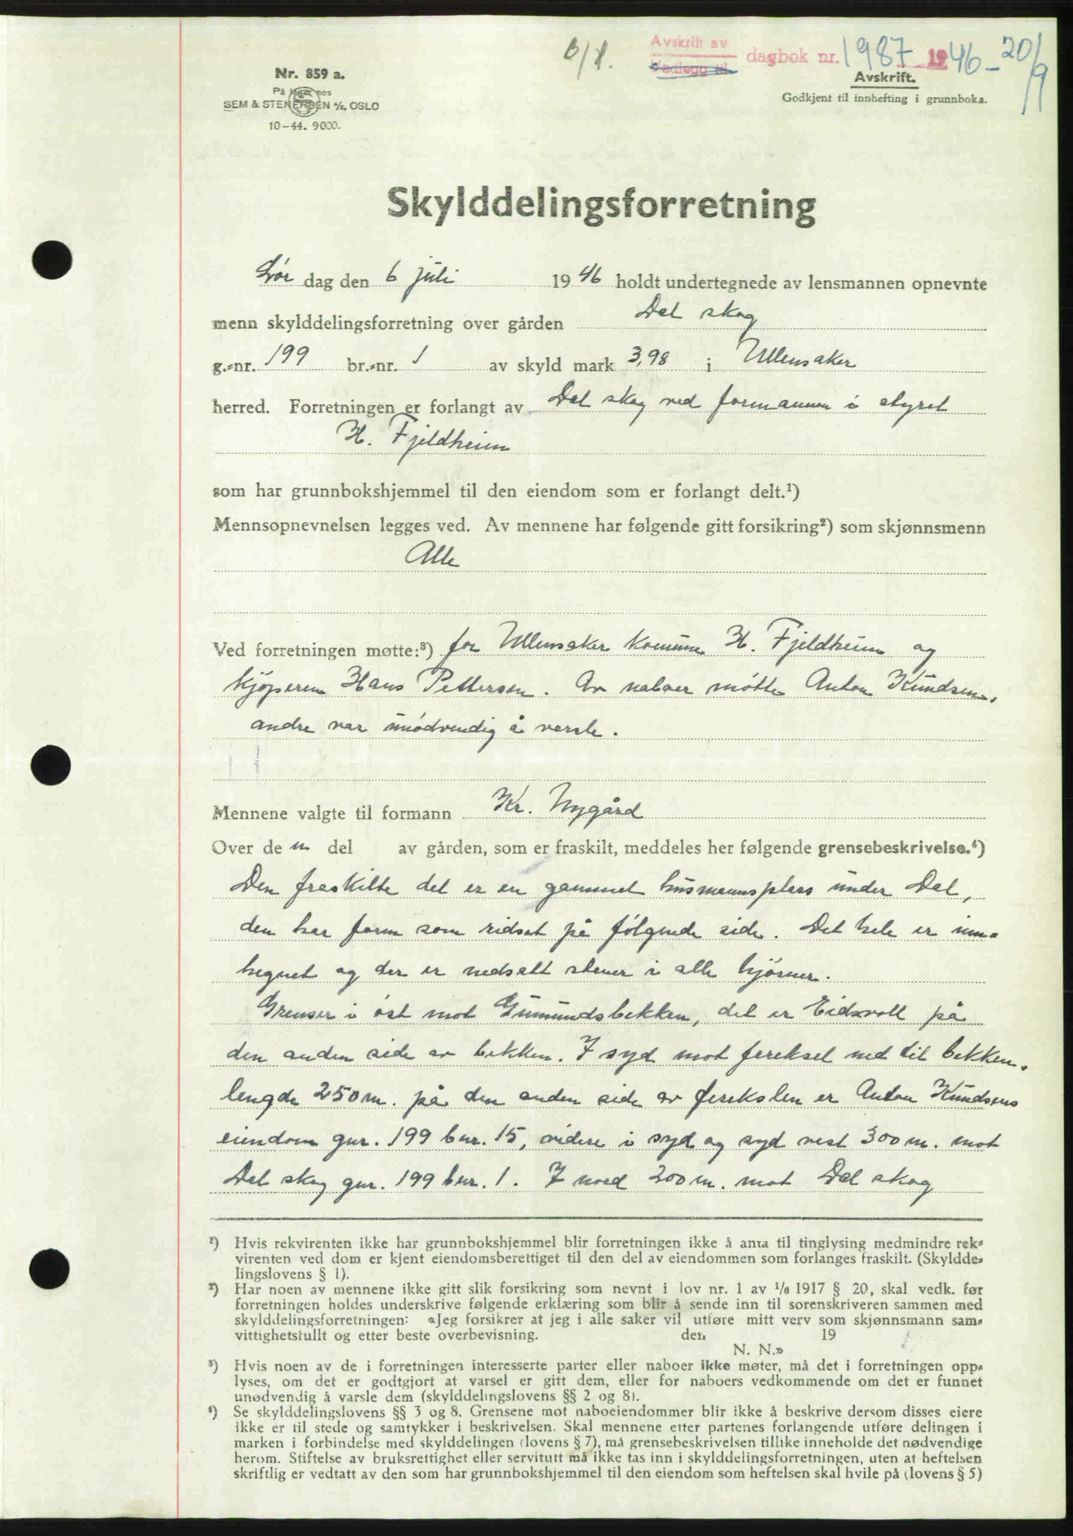 B/1.
Avskrift av
Vedlegg til
dagbok nr. 1987 1946 - 20/9
Avskrift.
Godkjent til innhefting i grunnboka.
Nr. 859 a.
På lager hos
SEM & STENERSEN A/S, OSLO
10-44. 9000.
Skylddelingsforretning
Lør dag den 6 juli 1946 holdt undertegnede av lensmannen opnevnte
menn skylddelingsforretning over gården Dal skog
g.-nr. 199 br.-nr. 1 av skyld mark 3,98 i Ullensaker
herred. Forretningen er forlangt av Dal skog ved formannen i styret
H. Fjeldheim
som har grunnbokshjemmel til den eiendom som er forlangt delt.¹)
Mennsopnevnelsen legges ved. Av mennene har følgende gitt forsikring²) som skjønnsmenn
Alle
Ved forretningen møtte:³) for Ullensaker komune H. Fjeldheim og
kjøperen Hans Pettersen. Av naboer møtte Anton Kundsen,
andre var unødvendig å varsle.
Mennene valgte til formann Kr. Nygård
Over de n del av gården, som er fraskilt, meddeles her følgende grensebeskrivelse.⁴)
Den fraskilte del er en gammel husmannsplass under Dal,
den har form som ridset på følgende side. Det hele er inn-
hegnet og der er nedsatt stener i alle hjørner.
Grenser i øst mot Gumundsbekken, det er Eidsvoll på
den anden side av bekken. I syd mot ferekset ned til bekken,
lengde 250 m. på den anden side av ferekslen er Anton Kundsens
eiendom gnr. 199 bnr. 15, videre i syd og syd vest 300 m. mot
Dal skog gnr. 199 bnr. 1. I nord 200 m. mot Dal skog
¹) Hvis rekvirenten ikke har grunnbokshjemmel blir forretningen ikke å anta til tinglysing medmindre rek-
virenten ved dom er kjent eiendomsberettiget til den del av eiendommen som forlanges fraskilt. (Skyldde-
lingslovens § 1).
²) Har noen av mennene ikke gitt slik forsikring som nevnt i lov nr. 1 av 1/6 1917 § 20, skal vedk. før
forretningen holdes underskrive følgende erklæring som blir å sende inn til sorenskriveren sammen med
skylddelingsforretningen: «Jeg forsikrer at jeg i alle saker vil utføre mitt verv som skjønnsmann sam-
vittighetsfullt og etter beste overbevisning. den 19
N. N.»
³) Hvis noen av de i forretningen interesserte parter eller naboer ikke møter, må det i forretningen opp-
lyses, om det er godtgjort at varsel er gitt dem, eller for naboers vedkommende om det er funnet
unødvendig å varsle dem (skylddelingslovens §§ 2 og 8).
⁴) Se skylddelingslovens §§ 3 og 8. Grensene mot naboeiendommer blir ikke å beskrive dersom disses eiere
ikke er til stede og samtykker i beskrivelsen. Skal mennene etter partenes forlangende utføre delingen i
marken i forbindelse med skylddelingen (lovens § 7), må grensebeskrivelsen tillike inneholde det nødvendige
herom. Stiftelse av bruksrettighet eller servitutt må ikke tas inn i skylddelingsforretningen, uten at heftelsen
skriftlig er vedtatt av den som har grunnbokshjemmel til den eiendom som heftelsen skal hvile på (lovens § 5)